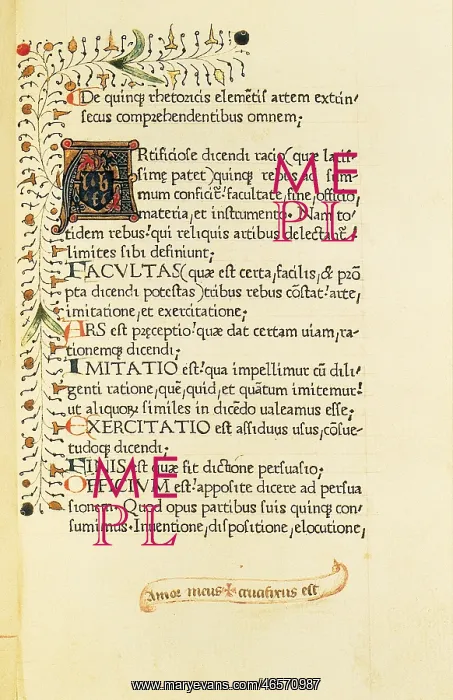 De quinq rhetoricis elemẽtis artem extrin-
secus comprehendentibus omnem;
ARtificiose dicendi racio (quæ latis-
sime patet) quinq rebus ad sum-
mum conficit: facultate, fine, officio,
materia, et instrumento. Nam to-
tidem rebus: qui reliquis artibus delectant:
limites sibi definiunt;
FACVLTAS (quæ est certa, facilis, & prõ
pta dicendi potestas) tribus rebus cõstat: arte,
imitatione, et exercitatione;
ARS est præceptio: quæ dat certam uiam, ra-
tionemq dicendi;
IMITATIO est: qua impellimur cũ dili-
genti ratione, quẽ, quid, et quãtum imitemur:
ut aliquorꝝ similes in dicẽdo ualeamus esse;
EXERCITATIO est assiduus usus, cõsue-
tudoq dicendi;
FINIS est quæ fit dictione persuasio;
OFFICIVM est: apposite dicere ad persua
sionem. Quod opus partibus suis quinq con-
sumimus. Inuentione, dispositione, elocutione,
Amor meus crucifixus est
ME
PL
ME
PL
www.maryevans.com/46570987